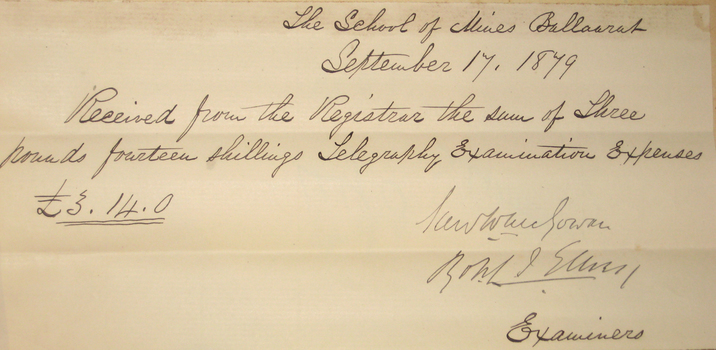 The School of Mines Ballaarat
September 17. 1879
Received from the Registrar the sum of Three
pounds fourteen shillings Telegraphy Examination Expenses
£3.14.0
Saml W McGowan
Robt I
Examiners